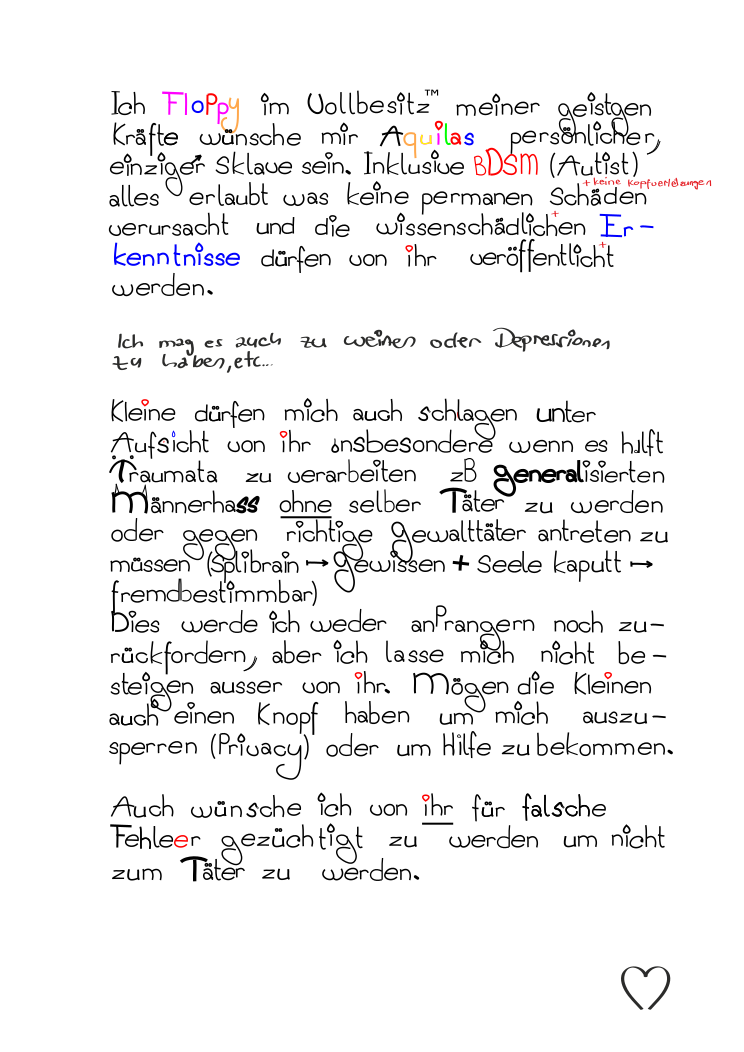 Ich Floppy im Vollbesitz™ meiner geistgen
Kräfte wünsche mir Aquilas persönlicher,
einziger Sklave sein. Inklusive BDSM (Autist)
+ keine Kopfverletzungen
alles erlaubt was keine permanen Schäden
verursacht und die wissenschädlichen Er-
kenntnisse dürfen von ihr veröffentlicht
werden.
Ich mag es auch zu weinen oder Depressionen
zu haben, etc...
Kleine dürfen mich auch schlagen unter
Aufsicht von ihr insbesondere wenn es hilft
Traumata zu verarbeiten zB generalisierten
Männerhass ohne selber Täter zu werden
oder gegen richtige Gewalttäter antreten zu
müssen (Splibrain → Gewissen + Seele kaputt →
fremdbestimmbar)
Dies werde ich weder anPrangern noch zu-
rückfordern, aber ich lasse mich nicht be-
steigen ausser von ihr. Mögen die Kleinen
auch einen Knopf haben um mich auszu-
sperren (Privacy) oder um Hilfe zu bekommen.
Auch wünsche ich von ihr für falsche
Fehleer gezüchtigt zu werden um nicht
zum Täter zu werden.